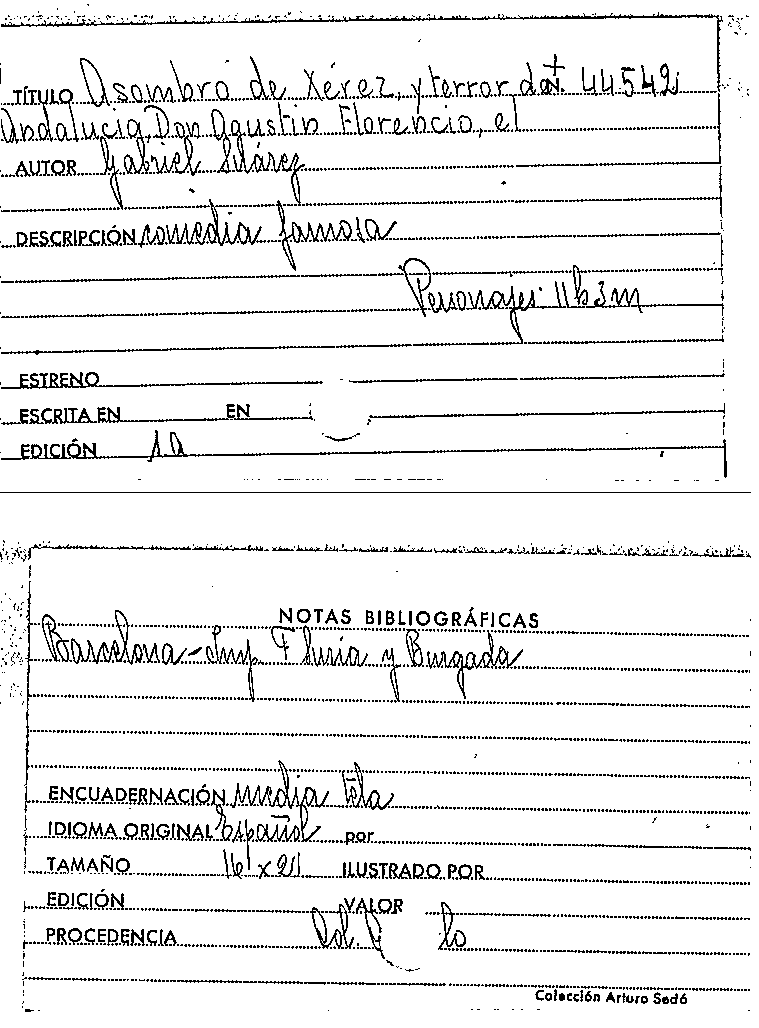 TÍTULO Asombro de Xérez, y terror de 44542
Andalucia, Don Agustin Florencio, el
AUTOR Gabriel Suárez
DESCRIPCIÓN comedia famosa
Personajes: 11h3m
ESTRENO
ESCRITA EN EN
EDICIÓN 1a
NOTAS BIBLIOGRÁFICAS
Barcelona-Imp. F Suria y Burgada
ENCUADERNACIÓN media tela
IDIOMA ORIGINAL Español por
TAMAÑO 16'x21 ILUSTRADO POR
EDICIÓN VALOR
PROCEDENCIA
Colección Arturo Sedó